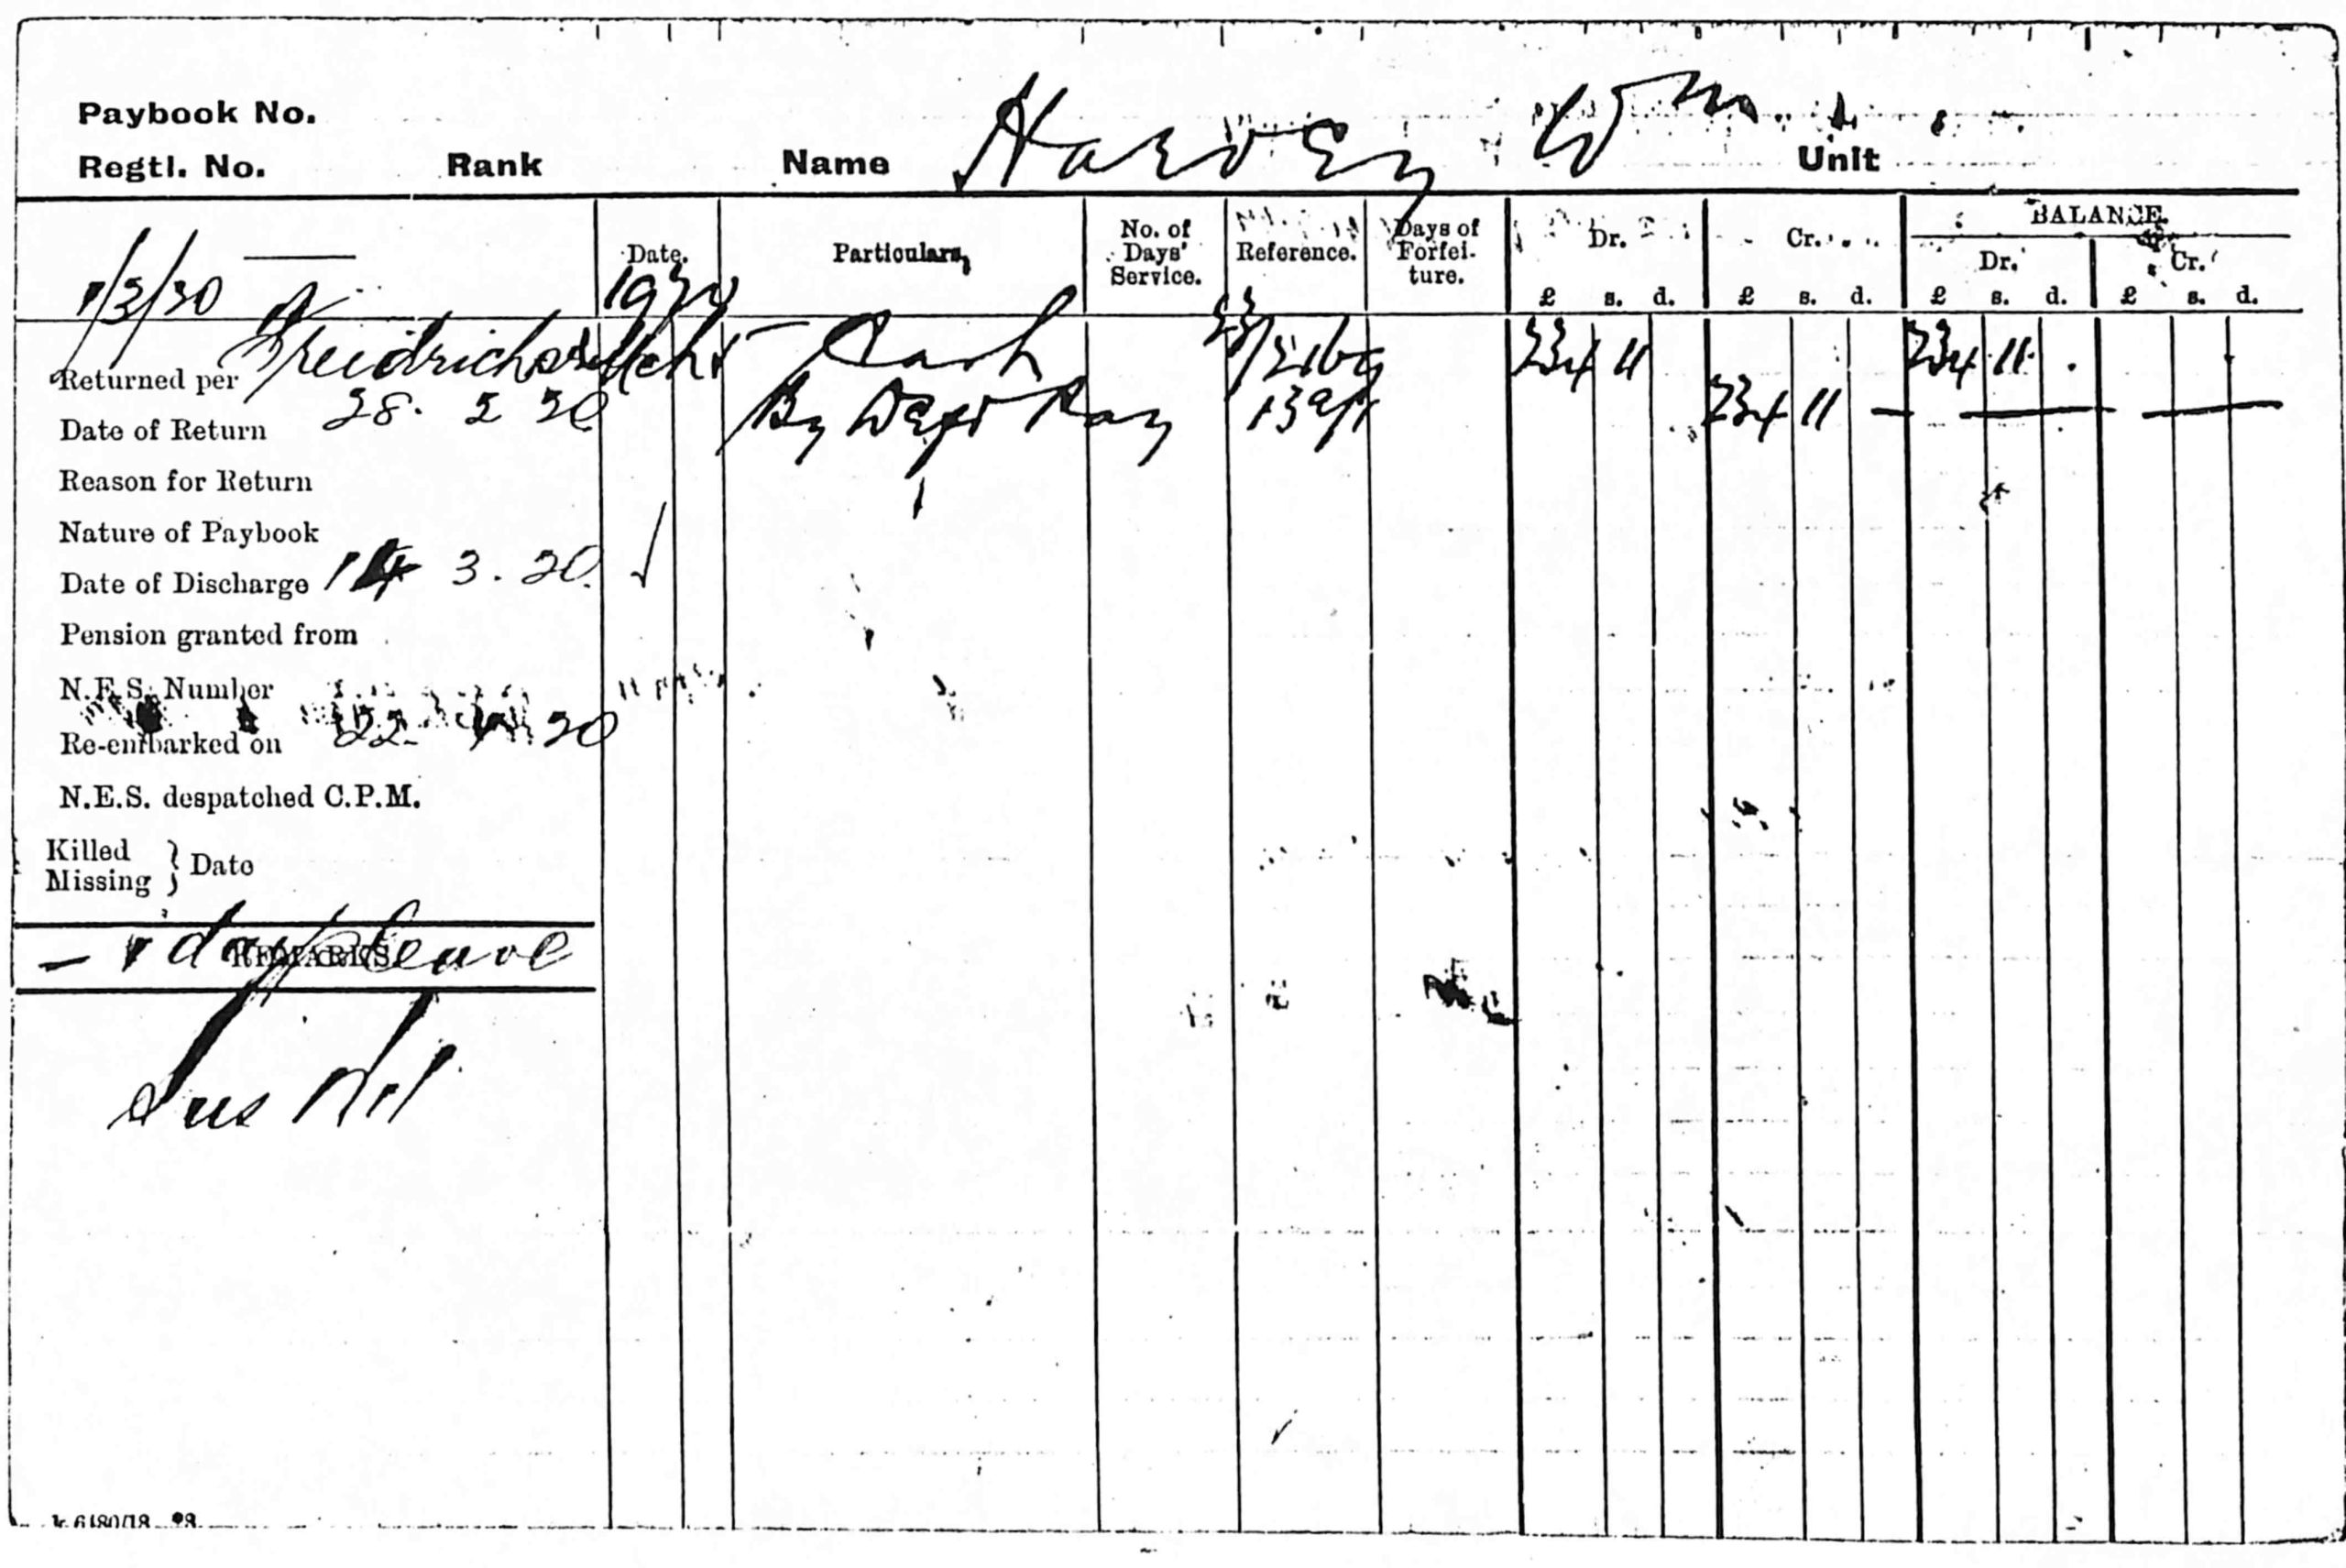 Paybook No.
Regtl. No. Rank Name Harvey Wm. Unit
Date. Particulars, No. of Days' Service. Reference. Days of Forfeiture. Dr. Cr. BALANCE.
Dr. Cr.
£ s. d. £ s. d. £ s. d. £ s. d.
1/3/20
Cash 234 11 234 11
Returned per
28. 2 20 By Dept Pay 234 11 —
Date of Return
Reason for Return
Nature of Paybook
Date of Discharge 14 3. 20.
Pension granted from
N.E.S. Number
Re-embarked on 22 20
N.E.S. despatched C.P.M.
Killed
Missing } Date
REMARKS
leave
Nil